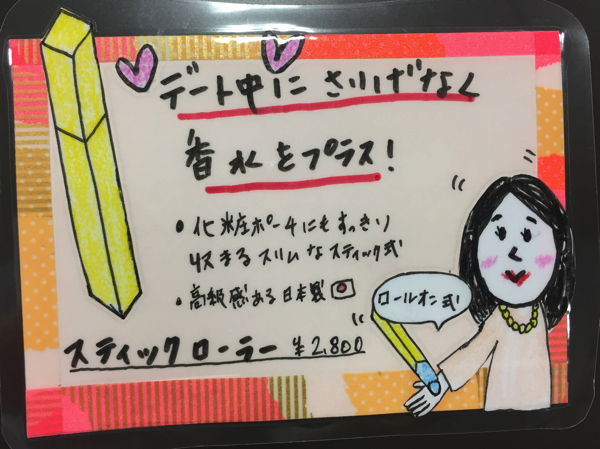 デート中にさりげなく
香水をプラス!
• 化粧ポーチにもすっきり
収まるスリムなスティック式
• 高級感ある日本製
ロールオン式
スティックローラー ¥2,800